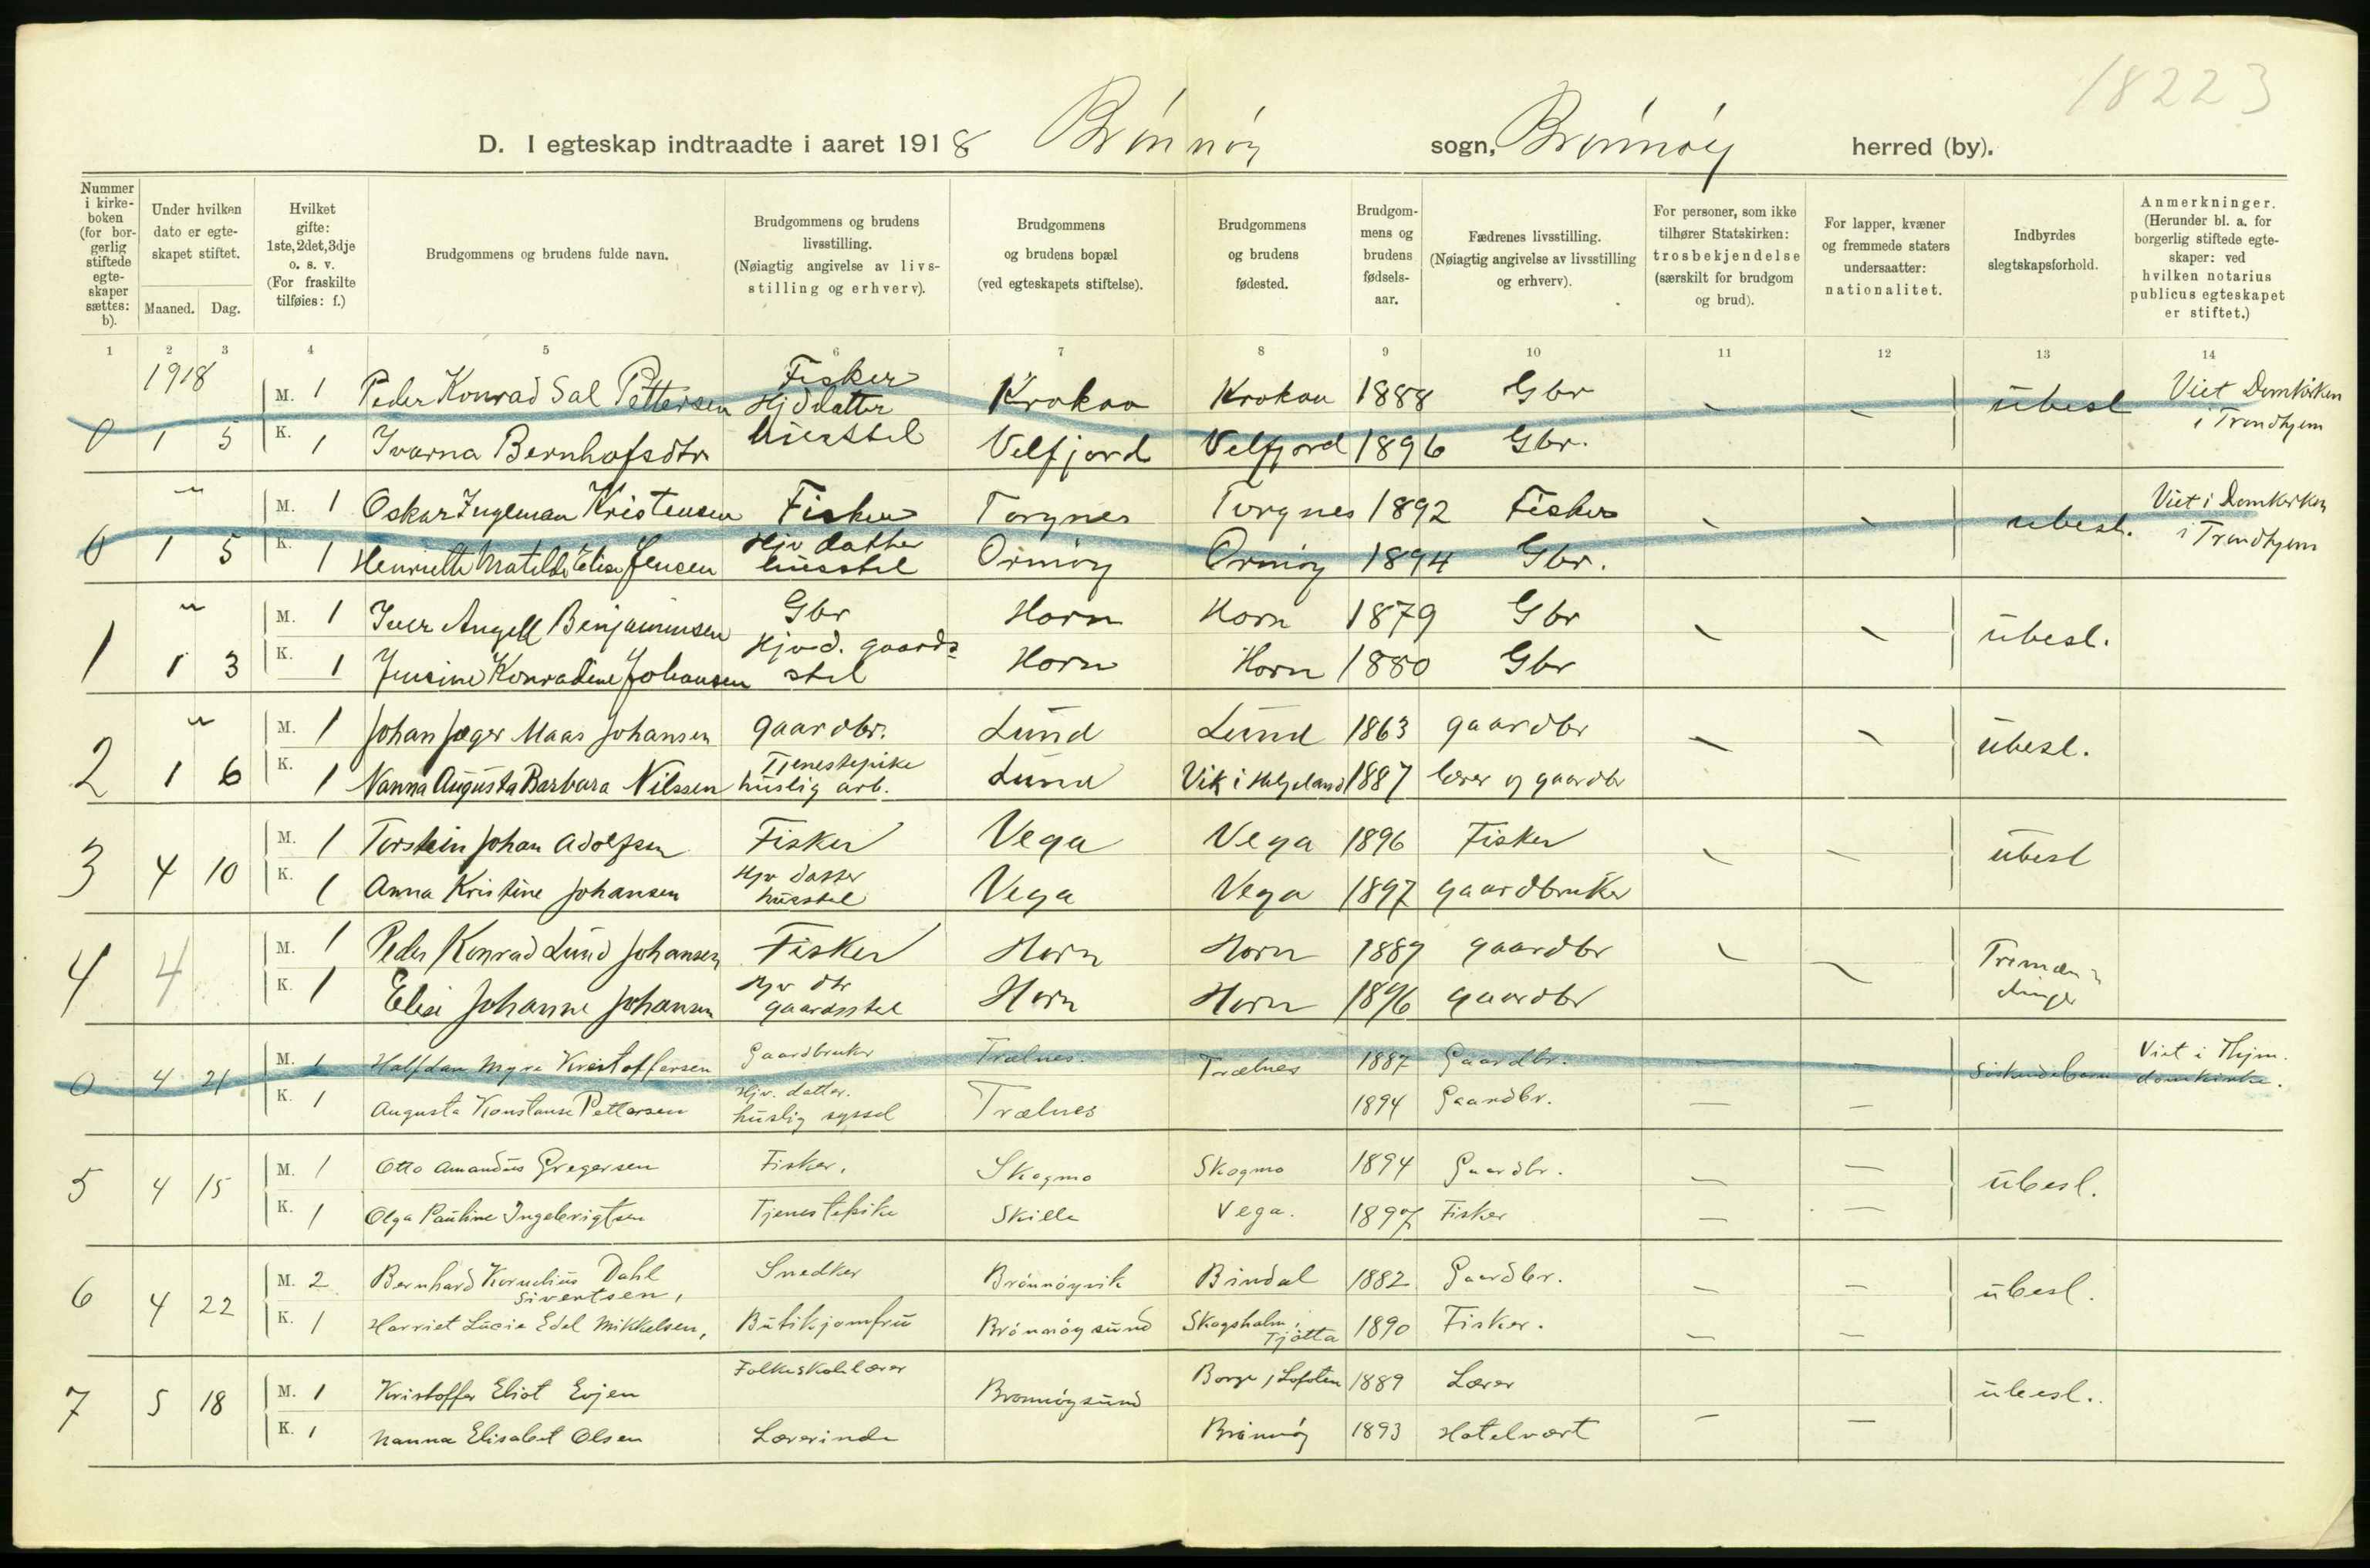 18223
D. I egteskap indtraadte i aaret 1918 Brønnøy sogn, Brønnøy herred (by).
Nummer i kirke-boken (for bor-gerlig stiftede egte-skaper sættes: b).
Under hvilken dato er egte-skapet stiftet.
Maaned. Dag.
Hvilket gifte: 1ste, 2det, 3dje o. s. v. (For fraskilte tilføies: f.)
Brudgommens og brudens fulde navn.
Brudgommens og brudens livsstilling. (Nøiagtig angivelse av livs-stilling og erhverv).
Brudgommens og brudens bopæl (ved egteskapets stiftelse).
Brudgommens og brudens fødested.
Brudgom-mens og brudens fødsels-aar.
Fædrenes livsstilling. (Nøiagtig angivelse av livsstilling og erhverv).
For personer, som ikke tilhører Statskirken: trosbekjendelse (særskilt for brudgom og brud).
For lapper, kvæner og fremmede staters undersaatter: nationalitet.
Indbyrdes slegtskapsforhold.
Anmerkninger. (Herunder bl. a. for borgerlig stiftede egte-skaper: ved hvilken notarius publicus egteskapet er stiftet.)
1 2 3 4 5 6 7 8 9 10 11 12 13 14
1918
M. 1 Peder Konrad Sal Pettersen Fisker Krokaa Krokaa 1888 Gbr ubesl Viet Domkirken i Trondhjem
0 1 5 K. 1 Ivarna Bernhofsdtr Hj datter husstel Velfjord Velfjord 1896 Gbr.
" M. 1 Oskar Ingleman Kristensen Fisker Torgnes Torgnes 1892 Fisker ubesl. Viet i Domkirken i Trondhjem
0 1 5 K. 1 Henriette Matilde Elise Jensen Hjv datter husstel Ormøy Ormøy 1894 Gbr.
" M. 1 Iver Angell Benjaminsen Gbr Horn Horn 1879 Gbr ubesl.
1 1 3 K. 1 Jensine Konradine Johansen Hjvd. gaards-stel Horn Horn 1880 Gbr
" M. 1 Johan Jæger Maas Johansen gaardbr. Lund Lund 1863 gaardbr ubesl.
2 1 6 K. 1 Nanna Augusta Barbara Nilssen Tjenestepike huslig arb. Lund Vik i Helgeland 1887 lærer og gaardbr
M. 1 Torstein Johan Adolfsen Fisker Vega Vega 1896 Fisker ubesl
3 4 10 K. 1 Anna Kristine Johansen Hjv datter husstel Vega Vega 1897 gaardbruker
M. 1 Peder Konrad Lund Johansen Fisker Horn Horn 1887 gaardbr Tremæn-dinger
4 4 K. 1 Elise Johanne Johansen Hjv dtr gaardsstel Horn Horn 1896 gaardbr
M. 1 Halfdan Myre Kristoffersen Gaardbruker Trælnes. Trælnes 1887 Gaardbr. Søskendebarn Viet i Thjm. domkirke.
0 4 21 K. 1 Augusta Konstanse Pettersen Hjv. datter. huslig syssel Trælnes 1894 Gaardbr.
M. 1 Otto Amandus Gregersen Fisker. Skogmo Skogmo 1894 Gaardbr. ubesl.
5 4 15 K. 1 Olga Pauline Ingebrigtsen Tjenestepike Skille Vega. 1897 Fisker
M. 2 Bernhard Kornelius Dahl Sivertsen, Snedker Brønnøyvik Bindal 1882 Gaardbr. ubesl.
6 4 22 K. 1 Harriet Lucie Edel Mikkelsen, Butikjomfru Brønnøysund Skogsholm, Tjøtta 1890 Fisker.
M. 1 Kristoffer Eliot Evjen Folkeskolelærer Brønnøysund Borge, Lofoten 1889 Lærer ubesl.
7 5 18 K. 1 Nanna Elisabet Olsen Lærerinde Brønnøy 1893 Hotelvært